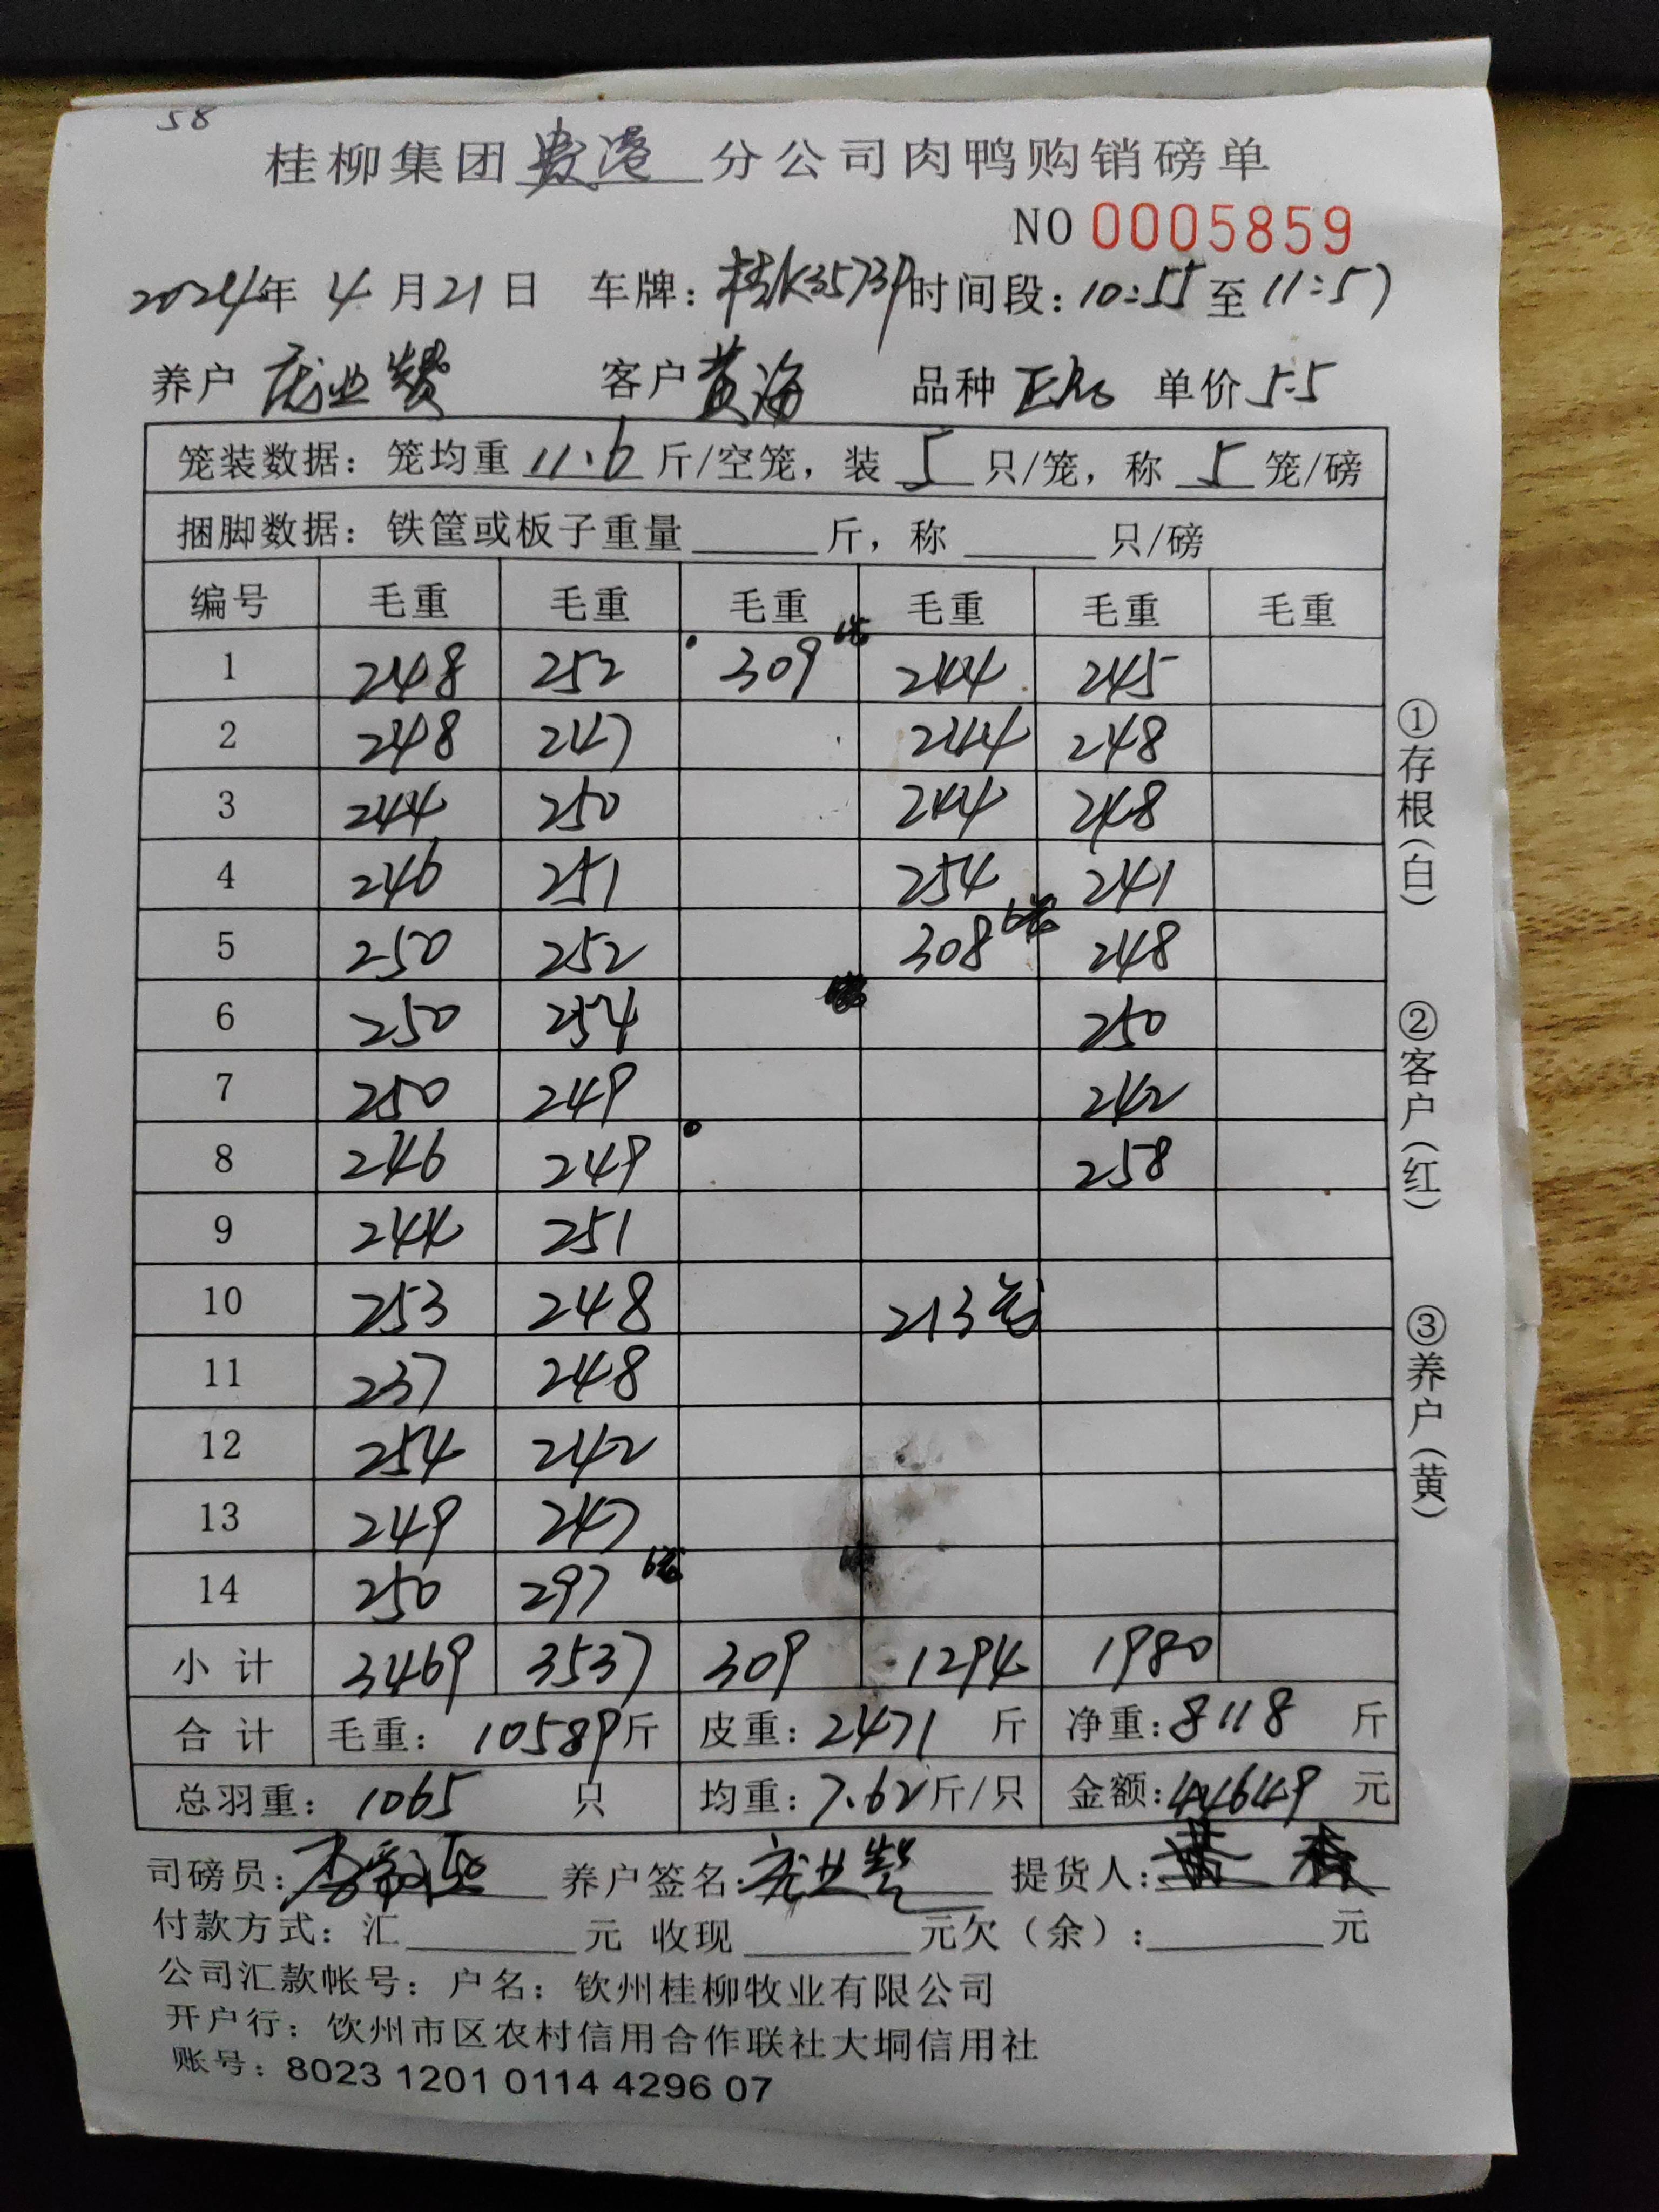 58
桂柳集团贵港分公司肉鸭购销磅单
NO 0005859
2024年 4 月 21 日 车牌：桂K35739 时间段：10:55 至 11:57
养户 庞业赞 客户 黄海 品种 单价 5.5
笼装数据：笼均重 11.6 斤/空笼，装 5 只/笼，称 5 笼/磅
捆脚数据：铁筐或板子重量 斤，称 只/磅
编号 毛重 毛重 毛重 毛重 毛重 毛重
1 248 252 309 6笼 244 245
2 248 247 244 248
3 244 250 244 248
4 246 251 254 241
5 250 252 308 6笼 248
6 250 254 250
7 250 249 242
8 246 249 258
9 244 251
10 253 248 213笼
11 237 248
12 254 242
13 249 247
14 250 297 6笼
小 计 3469 3537 309 1294 1980
合 计 毛重：10589斤 皮重：2471 斤 净重：8118 斤
总羽重：1065 只 均重：7.62斤/只 金额：44649 元
司磅员： 养户签名：庞业赞 提货人：
付款方式：汇 元 收现 元欠（余）： 元
公司汇款帐号：户名：钦州桂柳牧业有限公司
开户行：钦州市区农村信用合作联社大垌信用社
账号：8023 1201 0114 4296 07
①存根（白） ②客户（红） ③养户（黄）